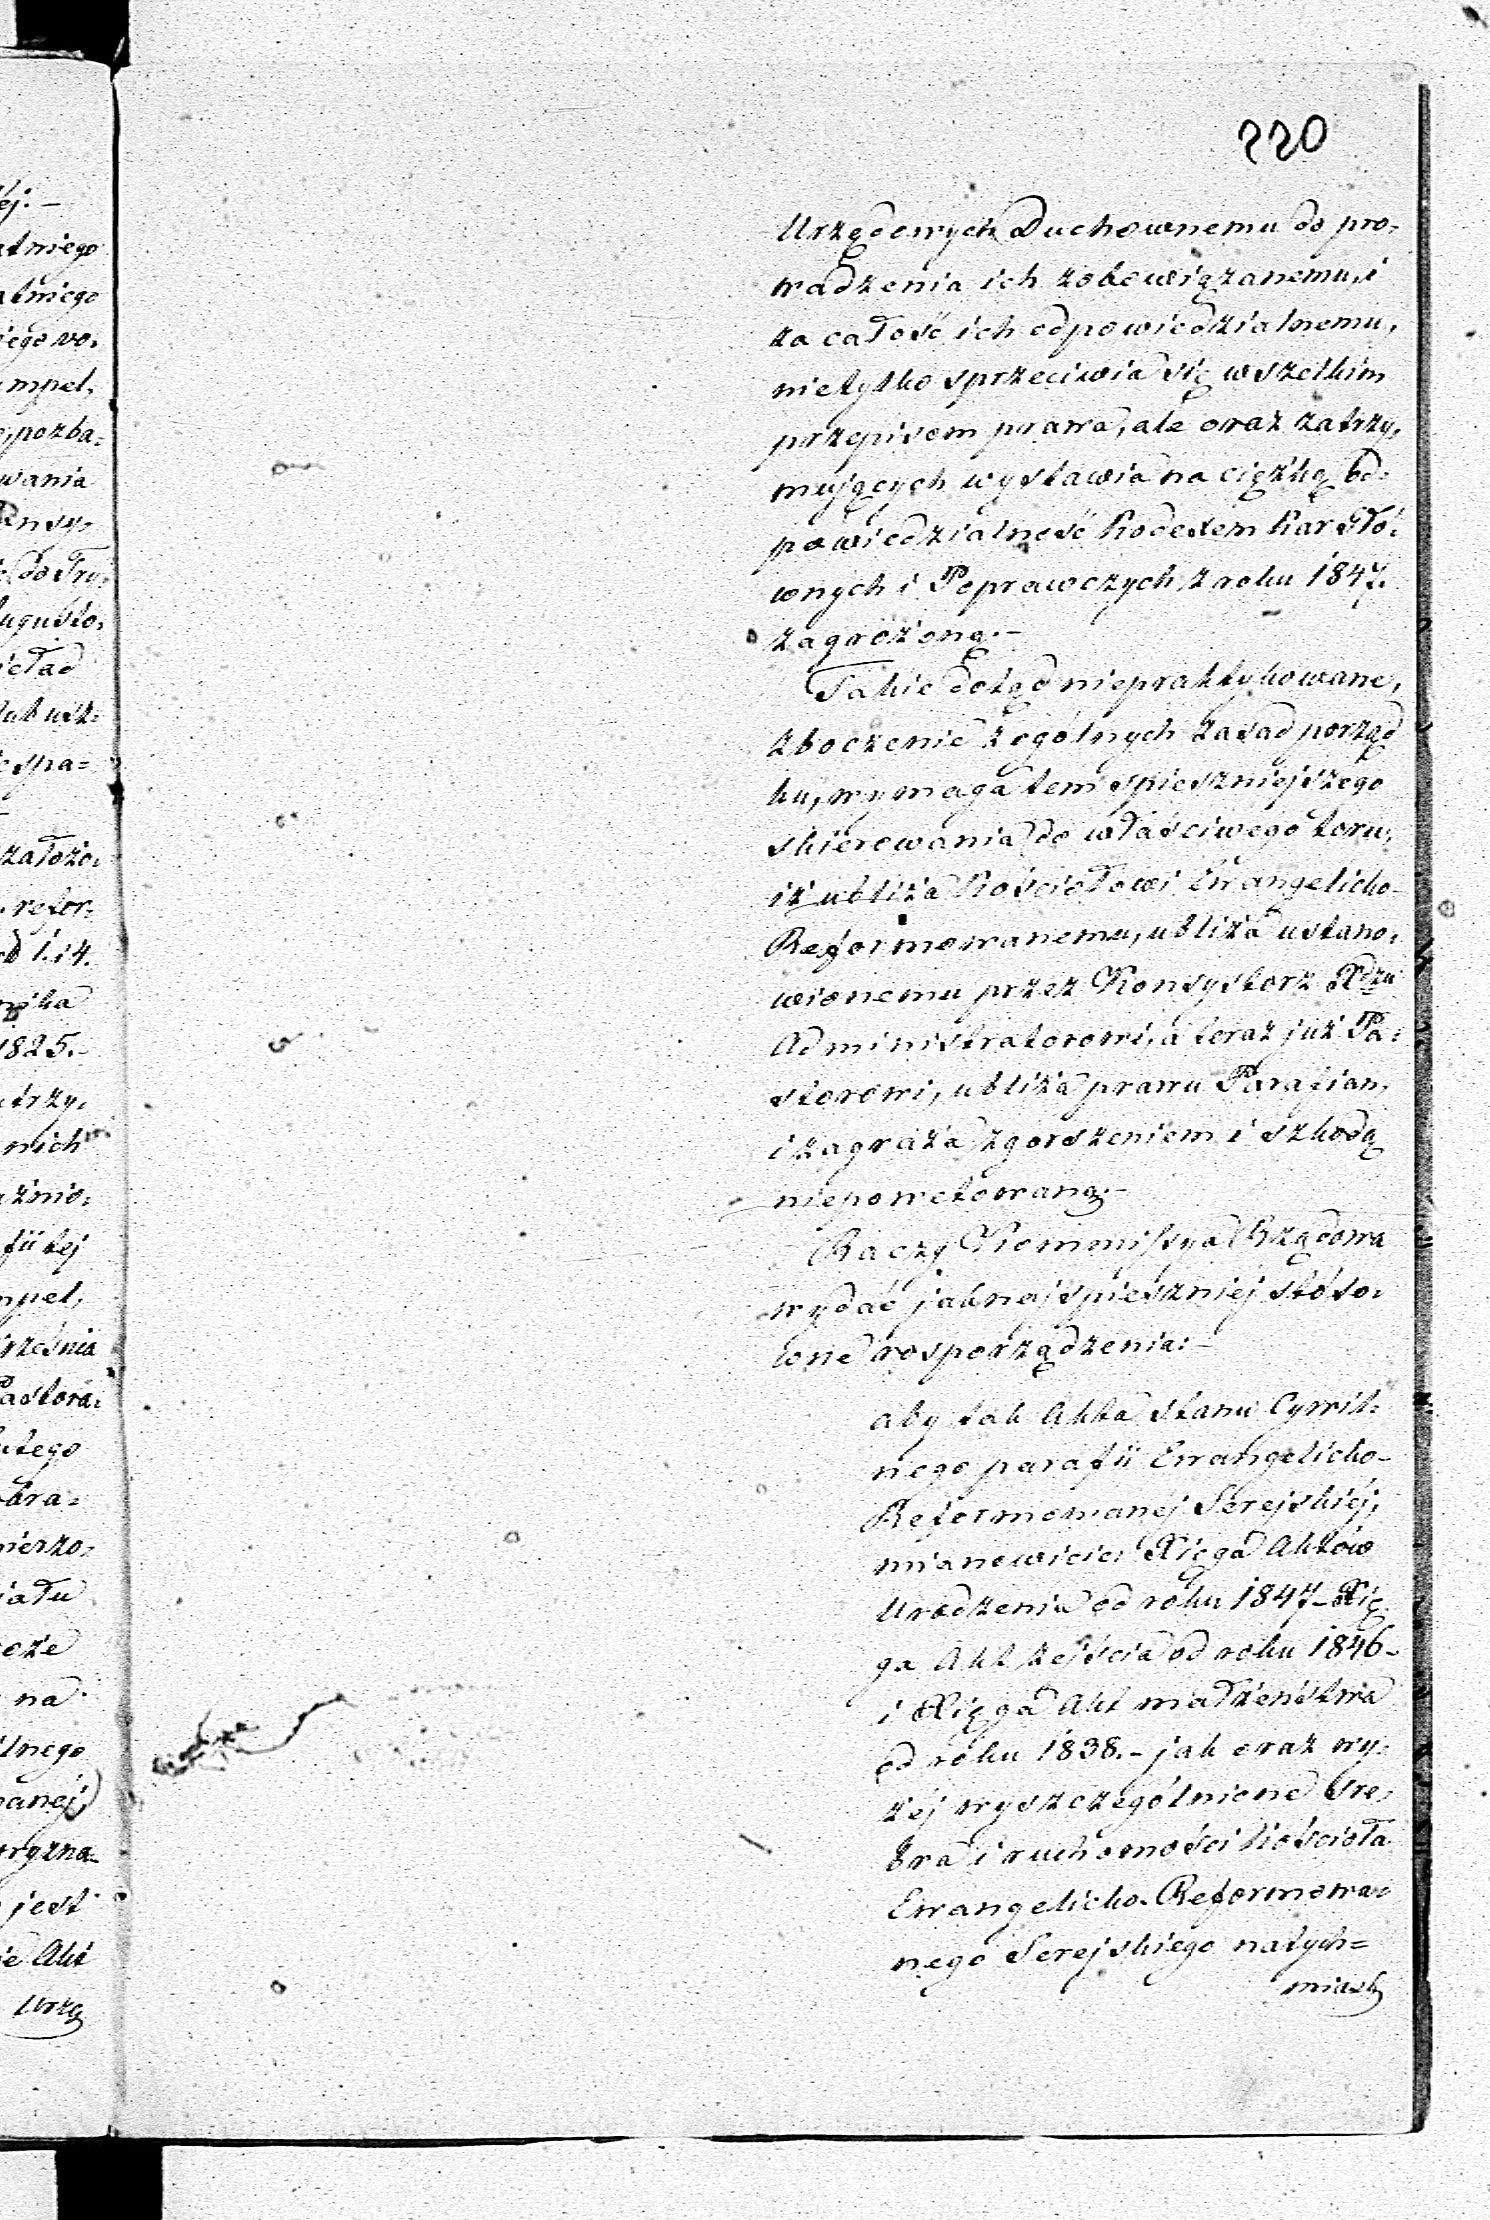 220
Urzędowych Duchownemu do pro-
wadzenia ich zobowiązanemu, i
za całość ich odpowiedzialnemu,
nietylko sprzeciwia się wszelkim
przepisom prawa, ale oraz zatrzy-
mujących wystawia na ciężką od-
powiedzialność Kodexem Kar Głó-
wnych i Poprawczych z roku 1847.
zagrożoną.-
Takie dotąd niepraktykowane,
zboczenie z ogólnych zasad porząd
ku, wymaga tem spieszniejszego
skierowania do właściwego toru,
iż ubliża Kościołowi Ewangelicko-
Reformowanemu, ubliża ustano-
wionemu przez Konsystorz Xdzu
Administratorowi, a teraz już Pa-
storowi, ubliża prawu Parafian,
i zagraża zgorszeniem i szkodą
niepowetowaną.-
Raczy Kommissya Rządowa
wydać jaknajspieszniej stóso-
wne rosporządzenia:-
aby tak Akta stanu Cywil-
nego parafii Ewangelicko-
Reformowanej Serejskiéj,
mianowicie: Xięga Aktów
Urodzenia od roku 1847- Xię
ga Akt zejścia od roku 1846-
i Xięga Akt małżeństwa
od roku 1838.- jak oraz wy-
żej wyszczególnione sre-
bra i ruchomości kościoła
Ewangelicko-Reformowa-
nego Serejskiego natych=
miast
éj.-
atniego
atniego
iego wo-
mpel,
pozba=
wania
Konsy-
do Try-
ugusto-
spa=
założo-
refor-
1.14.
1825.-
trzy-
nich
fii tej
mpel,
rześnia
Pastora-
utego
bra=
oże
na
lnego
anéj,
jest
ie Akt
Urzę